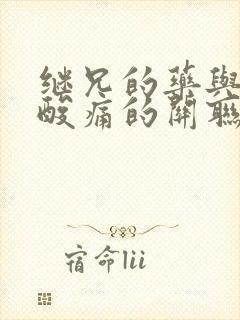 继兄的藥與
酸痛的關聯
宿命lii